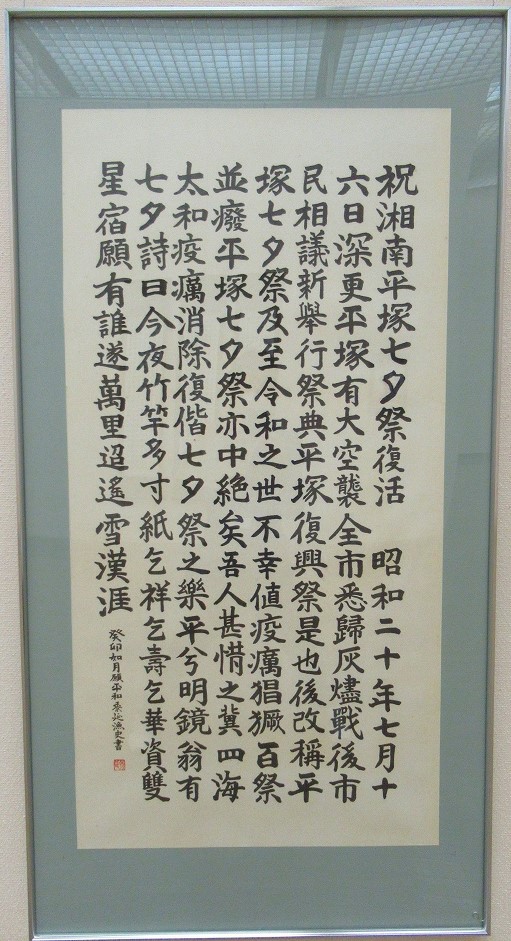 祝湘南平塚七夕祭復活 昭和二十年七月十
六日深更平塚有大空襲全市悉歸灰燼戰後市
民相議新舉行祭典平塚復興祭是也後改稱平
塚七夕祭及至令和之世不幸値疫癘猖獗百祭
並癈平塚七夕祭亦中絶矣吾人甚惜之冀四海
太和疫癘消除復偕七夕祭之樂平兮明鏡翁有
七夕詩曰今夜竹竿多寸紙乞祥乞壽乞華資雙
星宿願有誰遂萬里迢遙雪漢涯
癸卯如月願平和 漁史書